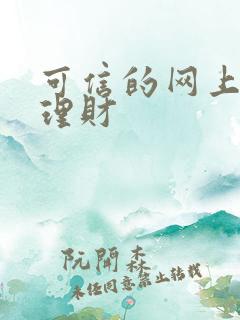 可信的网上
理财
阮開森
未经同意禁止转载